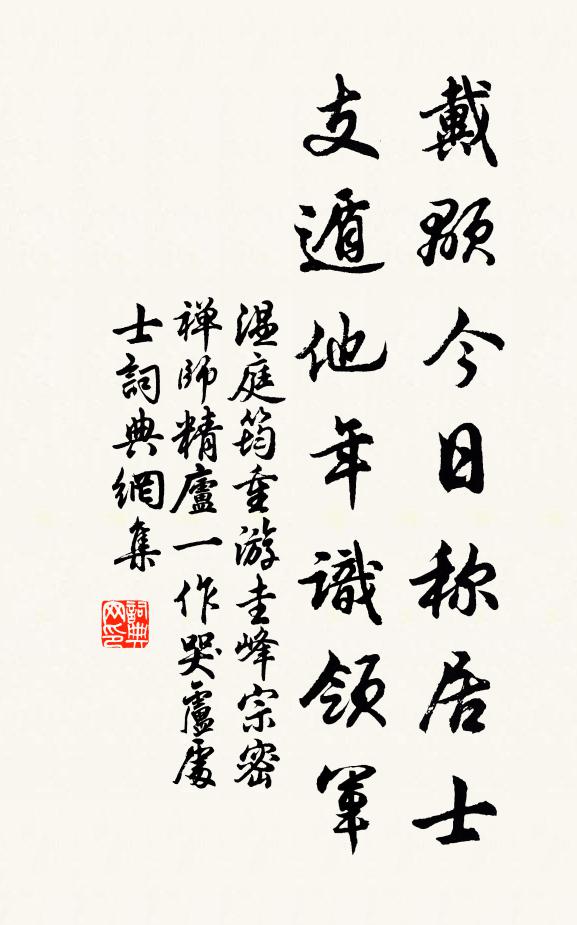 戴颙今日称居士
支遁他年識領軍
温庭筠重游圭峰宗密
禅師精廬一作哭盧處
士詞典網集
詞典網印